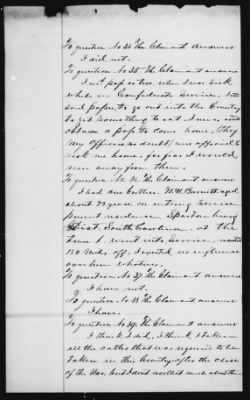 To question No 34 the Claimant answers
I did not.
To question No 35 The Claimant answers
I used pass at time when I was sick
while in Confederate service. I
used passes, to go out into the Country
to get something to eat. I never
obtain a pass to come home, they
my Officers no doubt were afraid to
risk me home, for fear I would
run away from them.
To question No 36 The Claimant answers
I had one brother. W. H. Burnett aged
about 29 years. on entering service
present residence Spartanburg
Dist. South Carolina. at the
time I went into service, resided
150 Miles off. I exerted no influence
over him whatever.
To question No 37 The Claimant answers
I have not.
To question No 38 The Claimant answers
I have.
To question No 39 The Claimant answers
I think I did, I think I taken
all the oaths that was required to be
taken in this Country after the close
of the War. but I did not